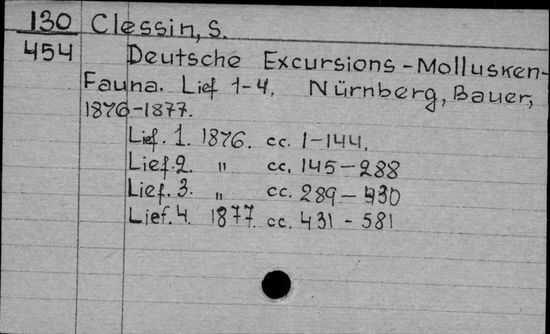 130 Clessin, S.
454 Deutsche Excursions-Mollusken-
Fauna. Lief 1-4. Nürnberg, Bauer,
1876-1877.
Lief. 1. 1876. cc. 1-144.
Lief. 2. " cc. 145-288
Lief. 3. " cc. 289-430
Lief. 4. 1877. cc. 431-581